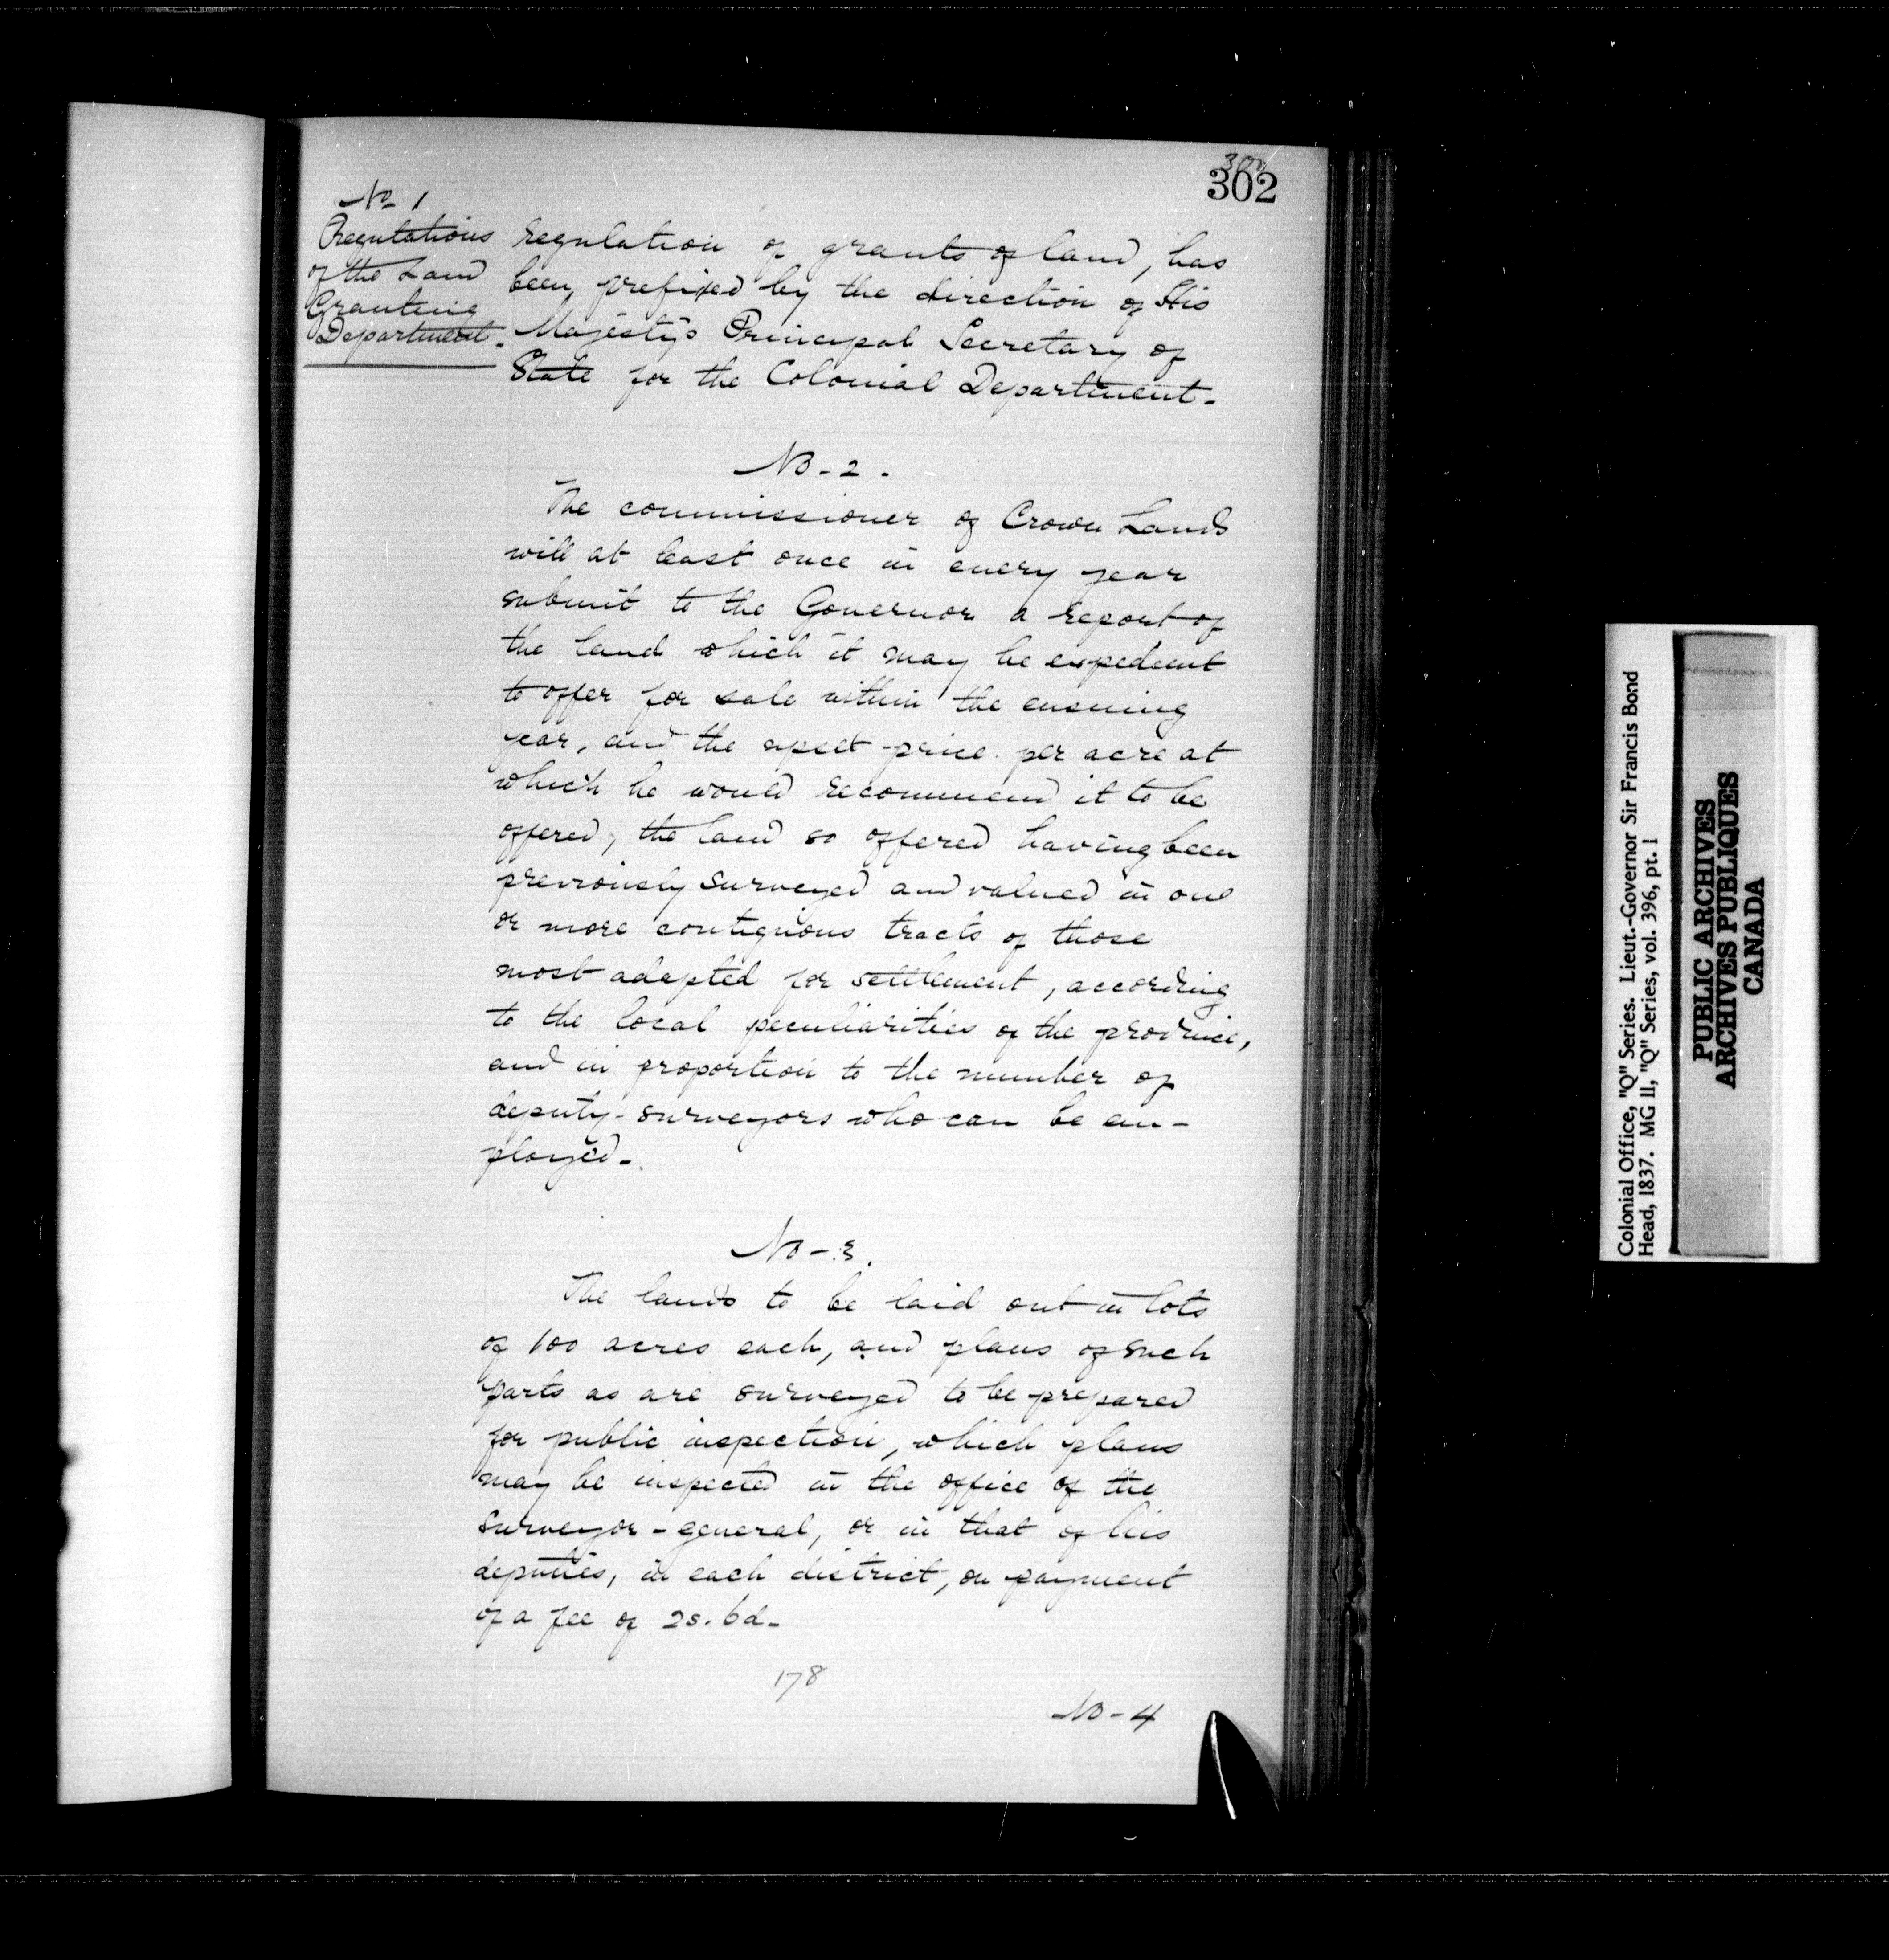 302
No 1
Regulations
of the Land
Granting
Department.
regulation of grants of land, has
been prefixed by the direction of His
Majesty's Principal Secretary of
State for the Colonial Department.
No - 2.
The commissioner of Crown Lands
will at least once in every year
submit to the Governor a report of
the land which it may be expedient
to offer for sale within the ensuing
year, and the upset price per acre at
which he would recommend it to be
offered; the land so offered having been
previously surveyed and valued in one
or more contiguous tracts of those
most adapted for settlement, according
to the local peculiarities of the province,
and in proportion to the number of
deputy-surveyors who can be em-
ployed.
No - 3.
The lands to be laid out in lots
of 100 acres each, and plans of such
parts as are surveyed to be prepared
for public inspection, which plans
may be inspected in the office of the
surveyor-general, or in that of his
deputies, in each district, on payment
of a fee of 2s. 6d.
178
No - 4
Colonial Office, "Q" Series. Lieut.-Governor Sir Francis Bond
Head, 1837. MG 11, "Q" Series, vol. 396, pt. 1
PUBLIC ARCHIVES
ARCHIVES PUBLIQUES
CANADA